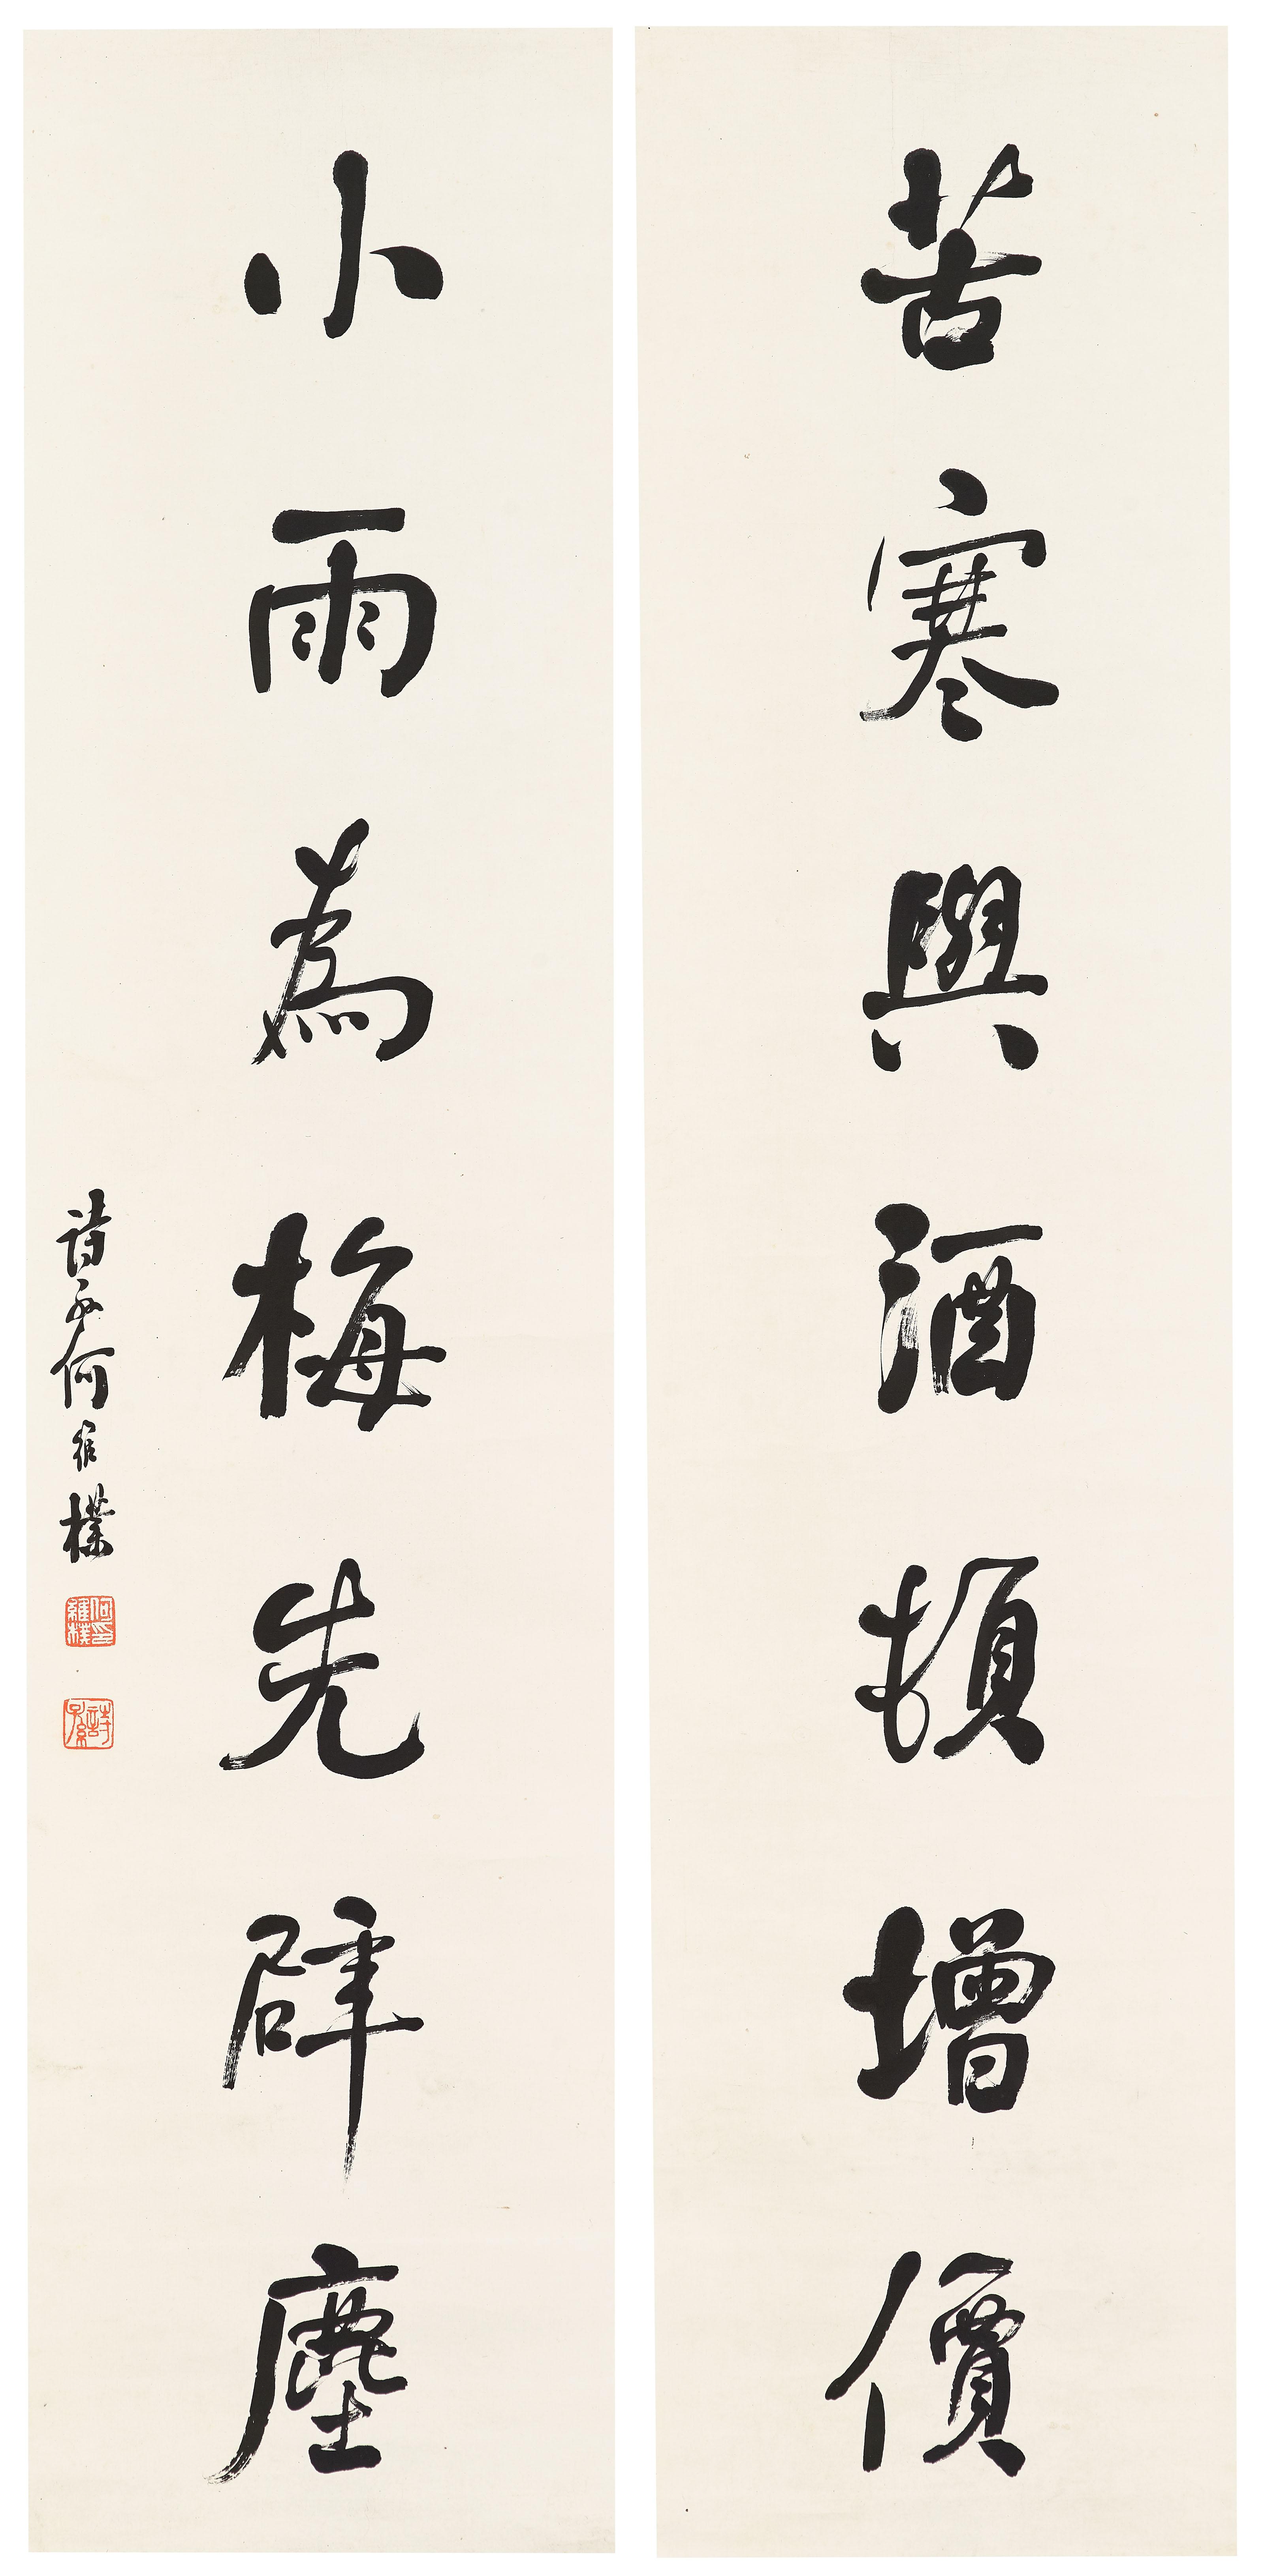 苦寒與酒頓增價
小雨為梅先辟塵
詩孫何維樸
何維樸印
詩孫